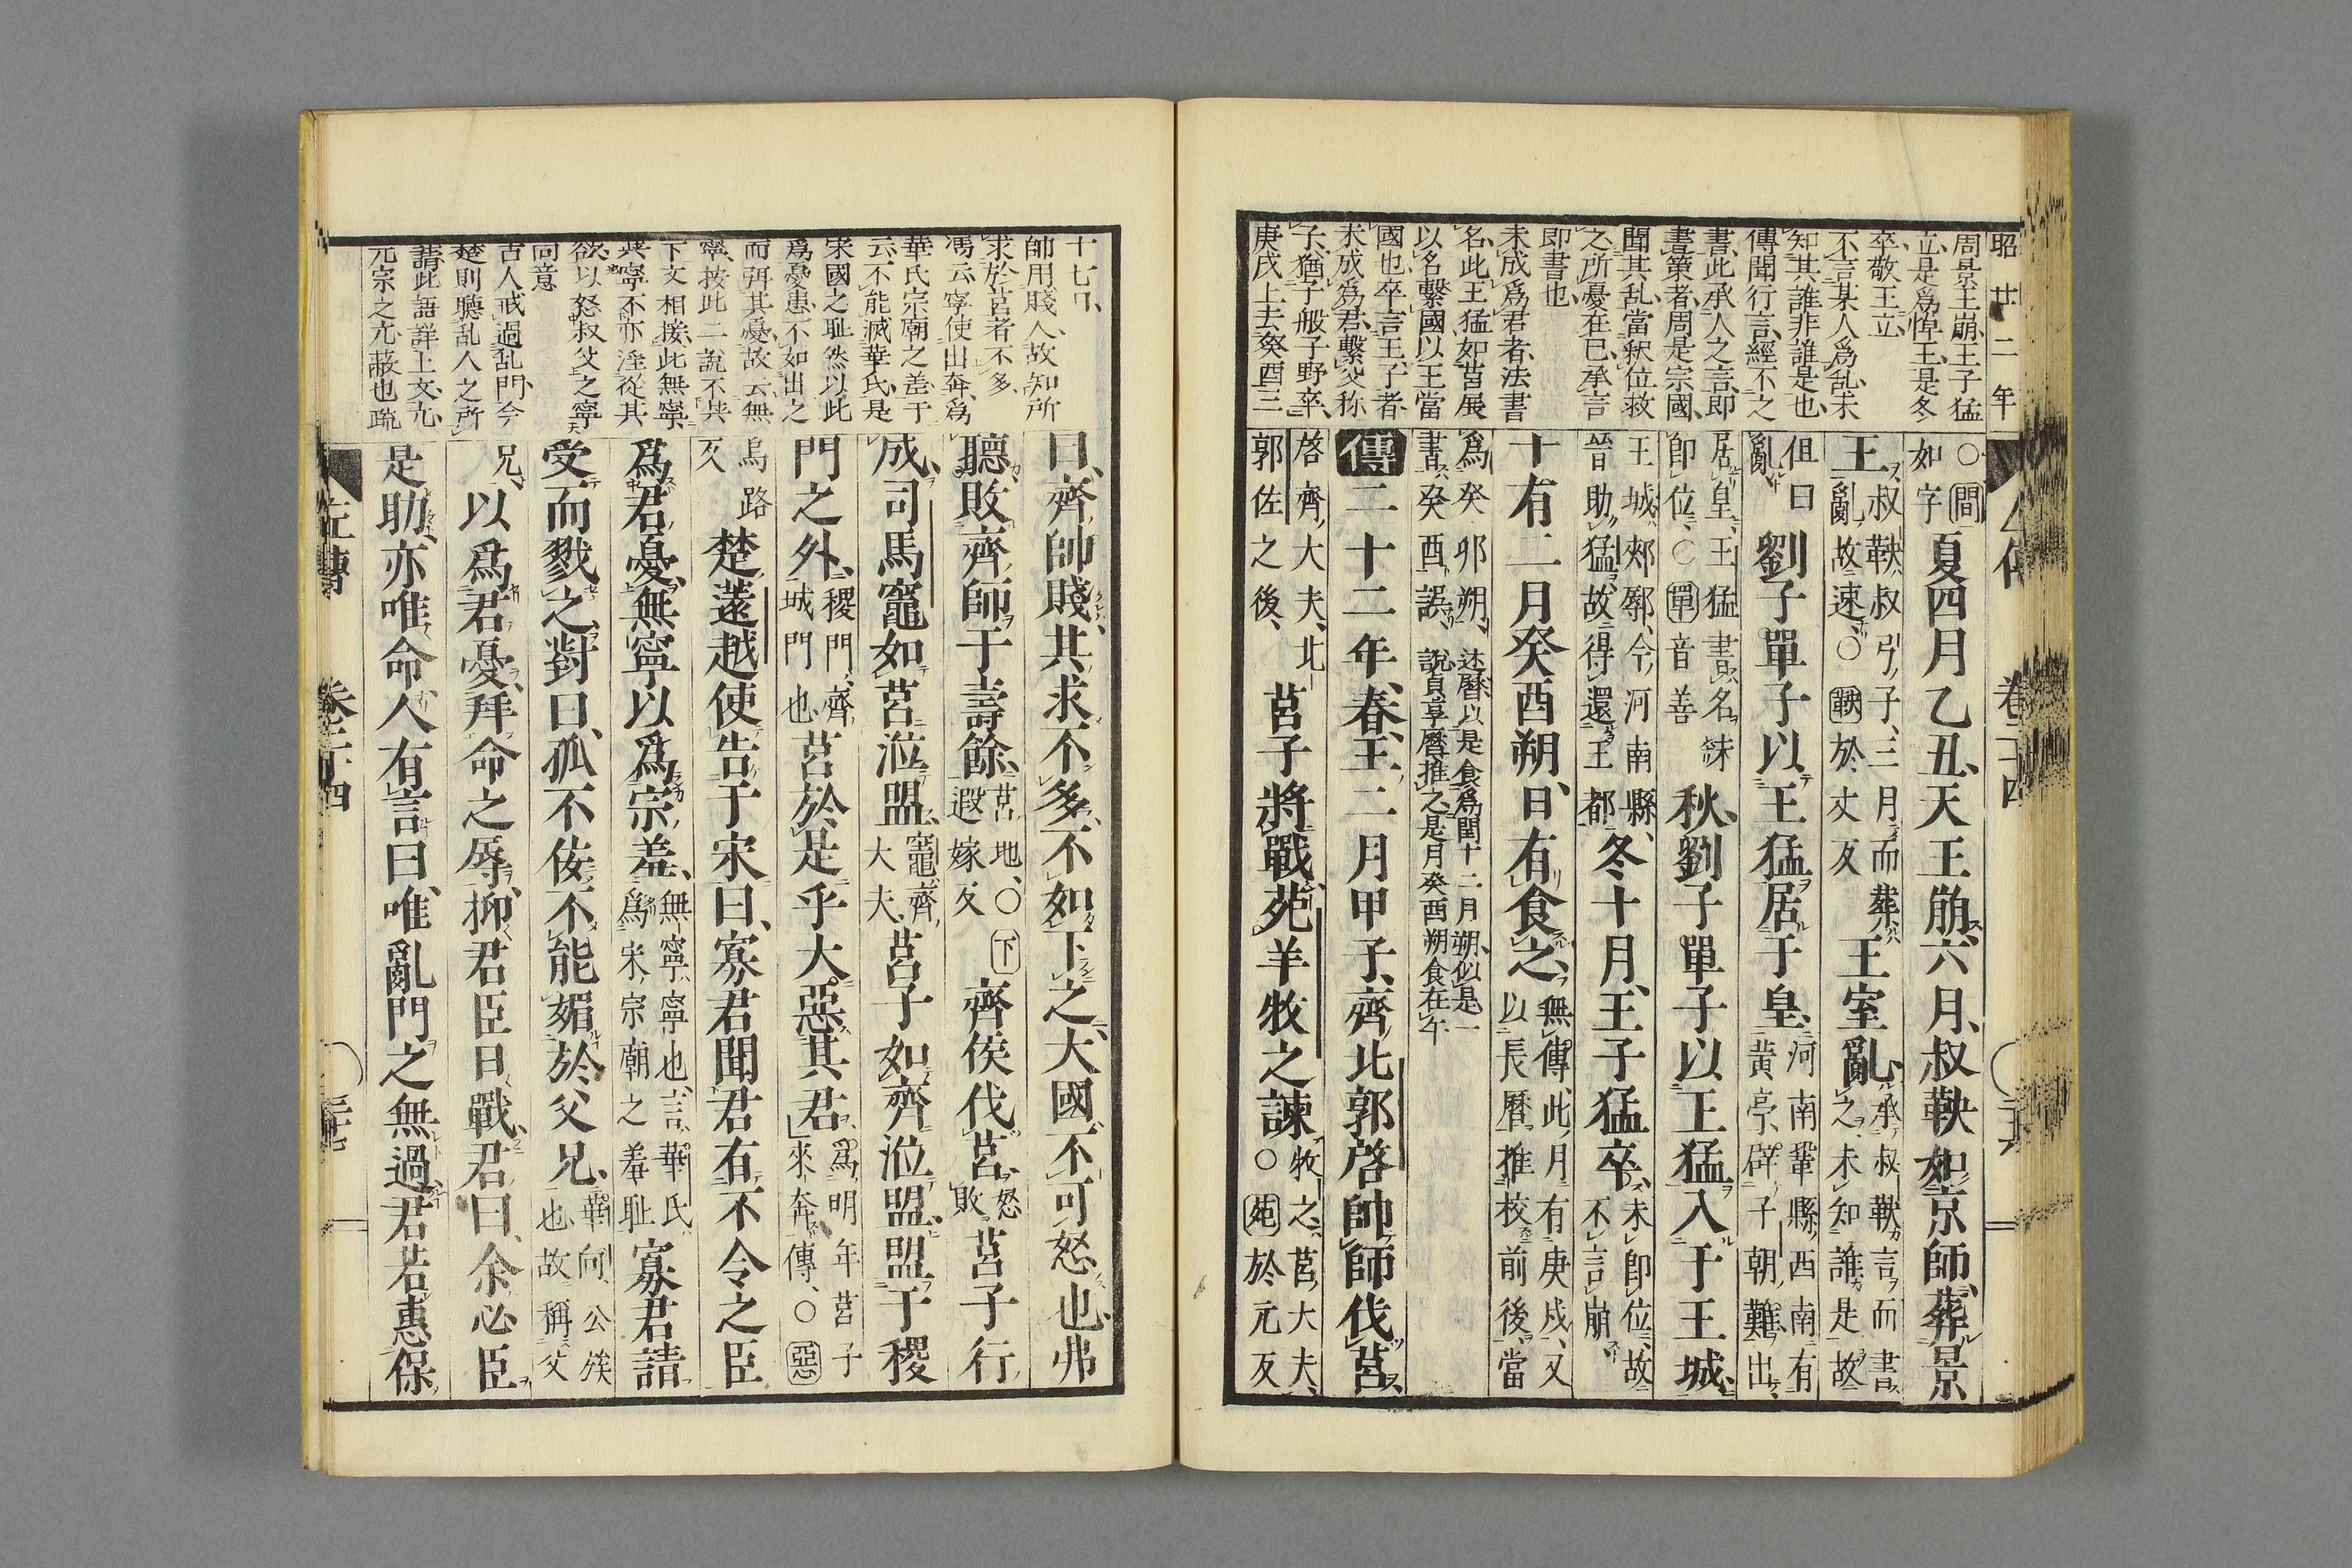 昭 廿二年
周景王崩王子猛
立是爲悼王是冬
卒敬王立
不言某人爲乱未
知其誰非誰是也
傳聞行言經不之
書此承人之言即
書策者周是宗國
聞其乱當釈位救
之所憂在已承言
即書也
未成爲君者法書
名此王猛如莒展
以名繫國以王當
國也卒言王子者
未成爲君繫父称
子猶子般子野卒
庚戌上去癸酉三
○間如字夏四月乙丑天王崩六月叔鞅如京師葬景
王叔鞅叔弓子三月而葬亂故速○鞅於丈反王室亂承叔鞅言而書之未知誰是故
但曰亂劉子單子以王猛居于皇河南鞏縣西南有黃亭辟子朝難出
居皇王猛書名未即位○單音善秋劉子單子以王猛入于王城
王城郟鄏今河南縣晉助猛故得還王都冬十月王子猛卒未即位故不言崩
十有二月癸酉朔日有食之無傳此月有庚戌又以長曆推校前後當
爲癸卯朔書癸酉誤述曆以是食爲閏十二月朔似是一說貞享曆推之是月癸酉朔食在午
傳二十二年春王二月甲子齊北郭啓帥師伐莒
啓齊大夫北郭佐之後莒子將戰苑羊牧之諫牧之莒大夫○苑於元反
十七日
師用賤人故知所
求於莒者不多
馮云寧使出奔爲
華氏宗廟之差于
云不能滅華氏是
宋國之耻然以此
爲憂患不如出之
而弭其憂故云無
寧按此二說不共
下文相接此無寧
與寧不亦淫從其
欲以怒叔父之寧
同意
古人戒過乱門今
楚則聽乱人之所
請此語詳上文亢
元宗之亢蔽也疏
曰齊帥賤其求不多不如下之大國不可怒也弗
聽敗齊師于壽餘莒地○下遐嫁反齊侯伐莒怒敗莒子行
成司馬竈如莒涖盟竈齊大夫莒子如齊涖盟盟于稷
門之外稷門齊城門也莒於是乎大惡其君爲明年莒子來奔傳○惡
烏路反楚薳越使告于宋曰寡君聞君有不令之臣
爲君憂無寧以爲宗羞無寧寧也言華氏爲宋宗廟之羞耻寡君請
受而戮之對曰孤不佞不能媚於父兄華向公族也故稱父
兄以爲君憂拜命之辱抑君臣日戰君曰余必臣
是助亦唯命人有言曰唯亂門之無過君若惠保
左傳 卷二十四